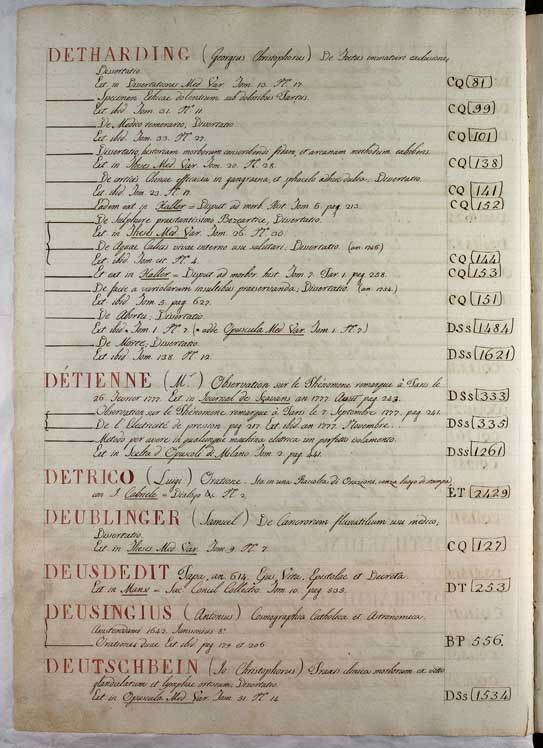 DETHARDING (Georgius Christophorus) De foetus immaturi exclusione,
Dissertatio.
Est in Dissertationes Med Var. Tom. 13. N.º 17. CQ 81
Specimen Ethicae dolentium ab doloribus Partus.
Est ibid. Tom. 31. N.º 11. CQ 99
De Medico temerario, Dissertatio.
Est ibid. Tom. 33. N.º 27. CQ 101
Dissertatio historiam morborum
Est in Theses Med Var. Tom. 20. N.º 28. CQ 138
De corticis Chinae efficacia in gangraena, et sphacelo adhuc dubia, Dissertatio.
Est ibid Tom. 23. N.º 17. CQ 141
Eadem est in Haller = Disput ad morb. Hist. Tom 6. pag 213. CQ 152
De Sulphure praestantissimo Bezoartico, Dissertatio.
Est in Theses Med Var. Tom. 26. N.º 30.
De Aquae Calcis vivae interno usu salutari; Dissertatio. (an. 1746)
Est ibid. Tom cit. N.º 4. CQ 144
Et est in Haller = Disput ad morbor. hist. Tom 7. Par. 1. pag 258. CQ 153
De facie a variolarum insultibus praeservanda; Dissertatio. (an. 1754.)
Est ibid Tom 5. pag 627. CQ 151
De Abortu; Dissertatio
Est ibi = Tom. 1. N.º 7. (= adde Opuscula Med Var. Tom. 1. N.º 7.) DSs 1484
De Morte; Dissertatio.
Est ibid. Tom. 138. N.º 12. DSs 1621
DÉTIENNE (M.r) Observation sur le Phénomene remarqué à Paris le
26. Fevrier 1777. Est in Journal de Sçavans an 1777. Aoust pag 243. DSs 333
Observation sur le Phénomene remarqué à Paris le 7. Septembre 1777. pag 241.
De l'Electricité de pression, pag 217. Est ibid. an 1777. Novembre. DSs 335
Metodo per avere il qualunque machina elettrica un perfetto isolamento.
Est in Scelta d'Opuscoli di Milano Tom 2. pag 441. DSs 1261
DETRICO (Luigi) Orazione. Sta in una Raccolta di Orazioni, senza luogo di stampa,
con I. Dialogo &c. N.º 2. ÉT 2429
DEUBLINGER (Samuel) De Cancrorum fluviatilium usu medico,
Dissertatio.
Est in Theses Med Var. Tom. 9. N.º 7. CQ 127
DEUSDEDIT Papa, an. 614. Ejus Vita, Epistolae et Decreta.
Est in Mansi = Sac. Concil Collectio. Tom 10. pag 535. DT 253
DEUSINGIUS (Antonius) Cosmographia Catholica et Astronomica.
Amstendami 1642. Jansonius 8.º
Orationes duae. Est ibi pag 179 et 206. BP 556.
DEUTSCHBEIN (Jo Christophorus) Praxis clinica morborum ex vitio
glandularum et lymphae ortorum, Dissertatio.
Est in Opuscula Med Var. Tom. 31. N.º 14. DSs 1534